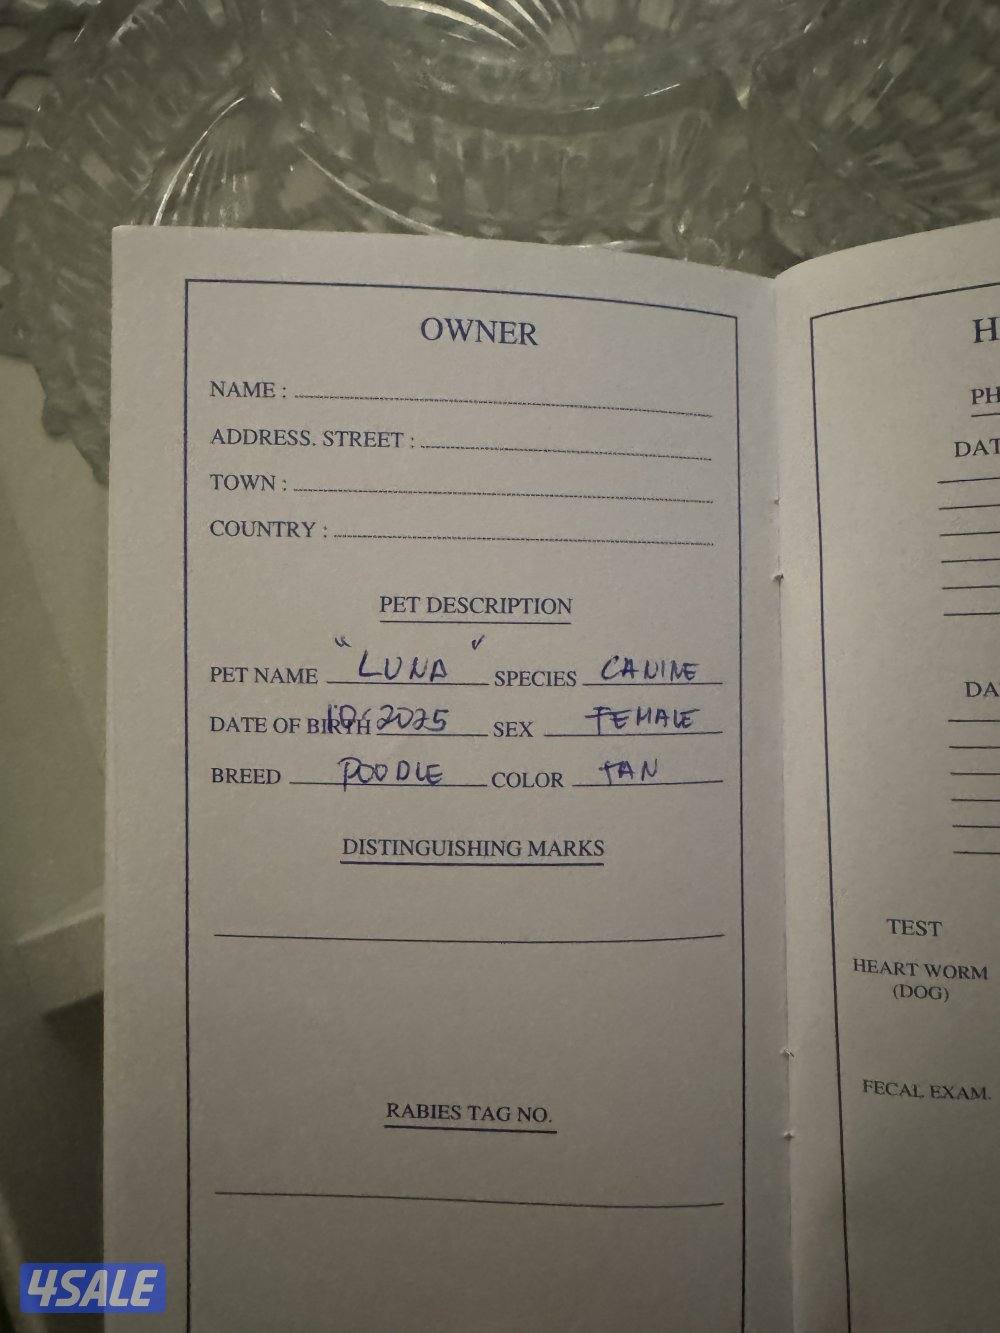 OWNER
NAME :
ADDRESS. STREET :
TOWN :
COUNTRY :
PET DESCRIPTION
PET NAME "LUNA" SPECIES CANINE
DATE OF BIRTH 10-2025 SEX FEMALE
BREED POODLE COLOR TAN
DISTINGUISHING MARKS
RABIES TAG NO.
H
PH
DAT
DA
TEST
HEART WORM
(DOG)
FECAL EXAM.
4SALE